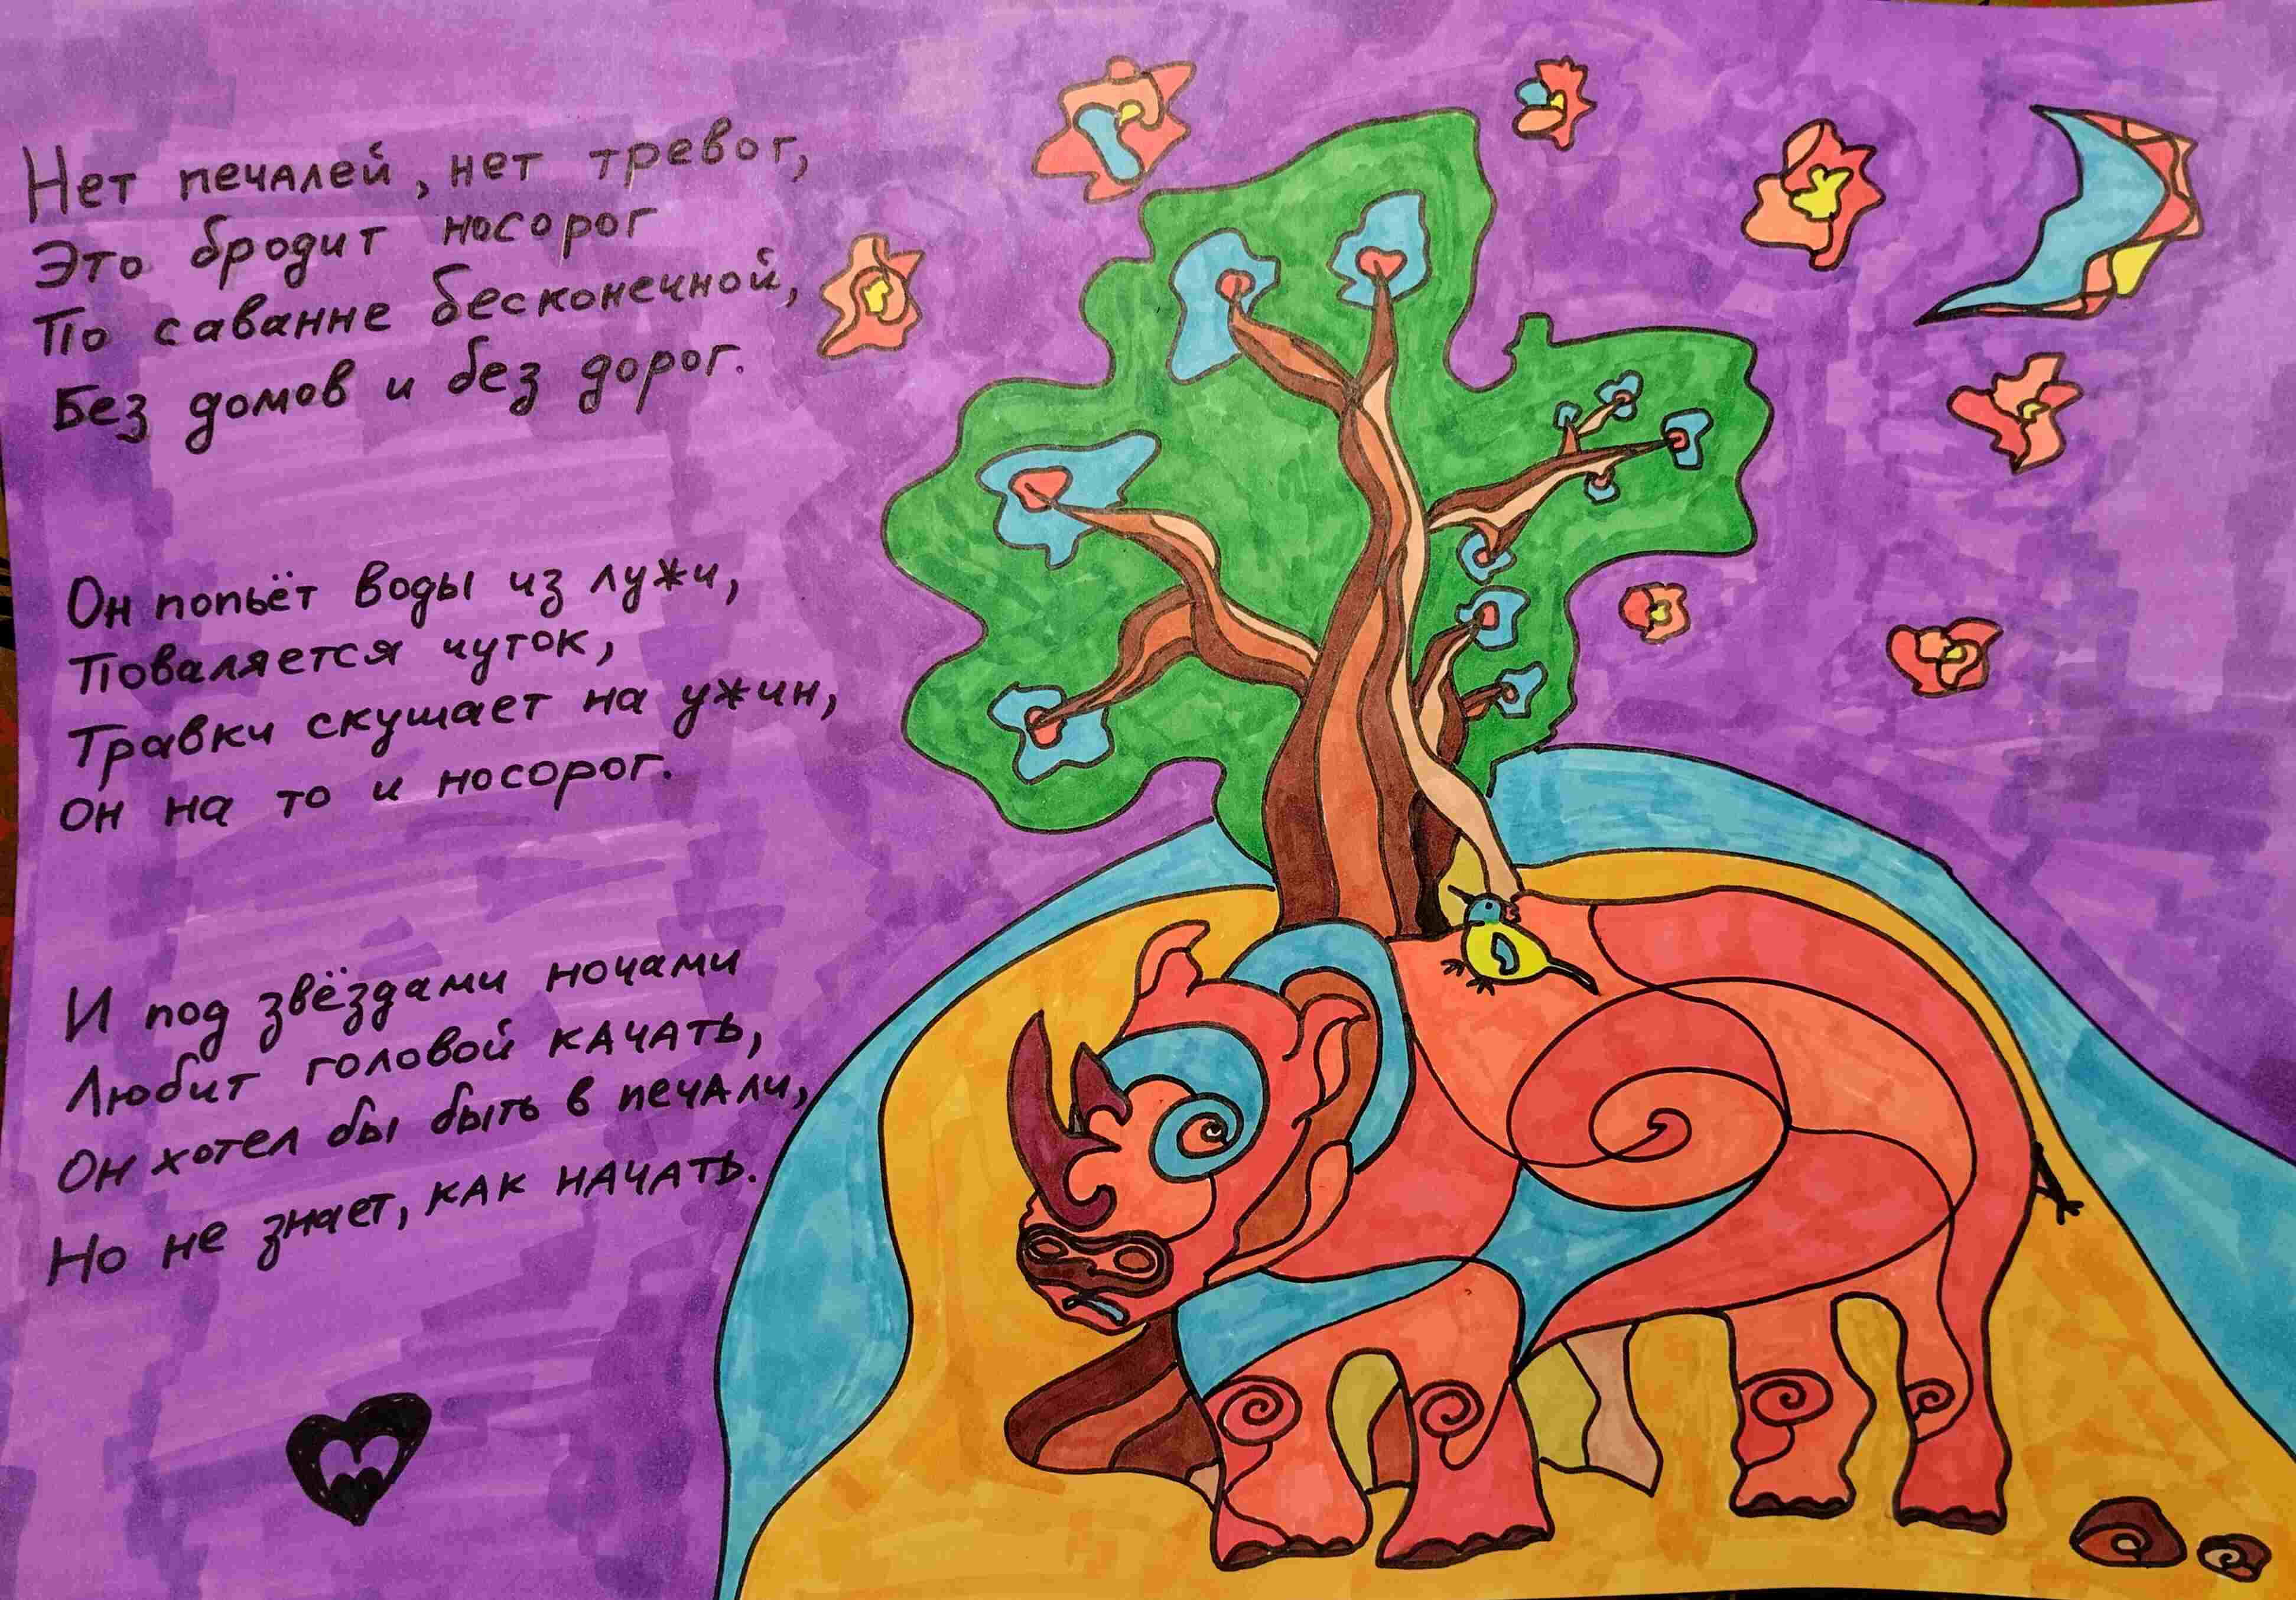 Нет печалей, нет тревог,
Это бродит носорог
По саванне бесконечной,
Без домов и без дорог.
Он попьёт воды из лужи,
Поваляется чуток,
Травки скушает на ужин,
Он на то и носорог.
И под звёздами ночами
Любит головой качать,
Он хотел бы быть в печали,
Но не знает, как начать.